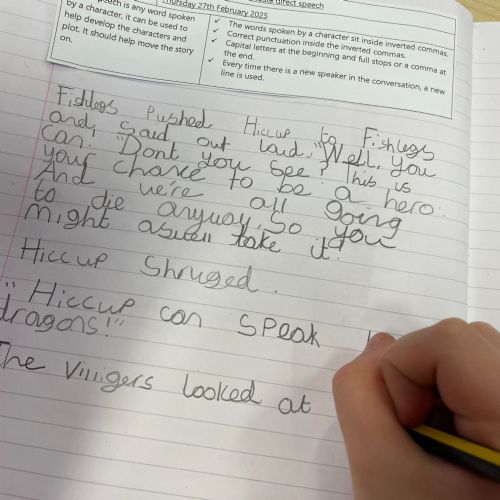 direct speech
Thursday 27th February 2025
speech is any word spoken
by a character, it can be used to
help develop the characters and
plot. It should help move the story
on.
✓ The words spoken by a character sit inside inverted commas.
✓ Correct punctuation inside the inverted commas.
✓ Capital letters at the beginning and full stops or a comma at
the end.
✓ Every time there is a new speaker in the conversation, a new
line is used.
Fishlegs pushed Hiccup to Fishlegs
and, said out loud, "Well, you
can. "Dont you see? This is
your chance to be a hero.
And we're all going
to die anyway, so you
might aswell take it!
Hiccup Shruged.
"Hiccup can speak
dragons!"
The Villigers looked at